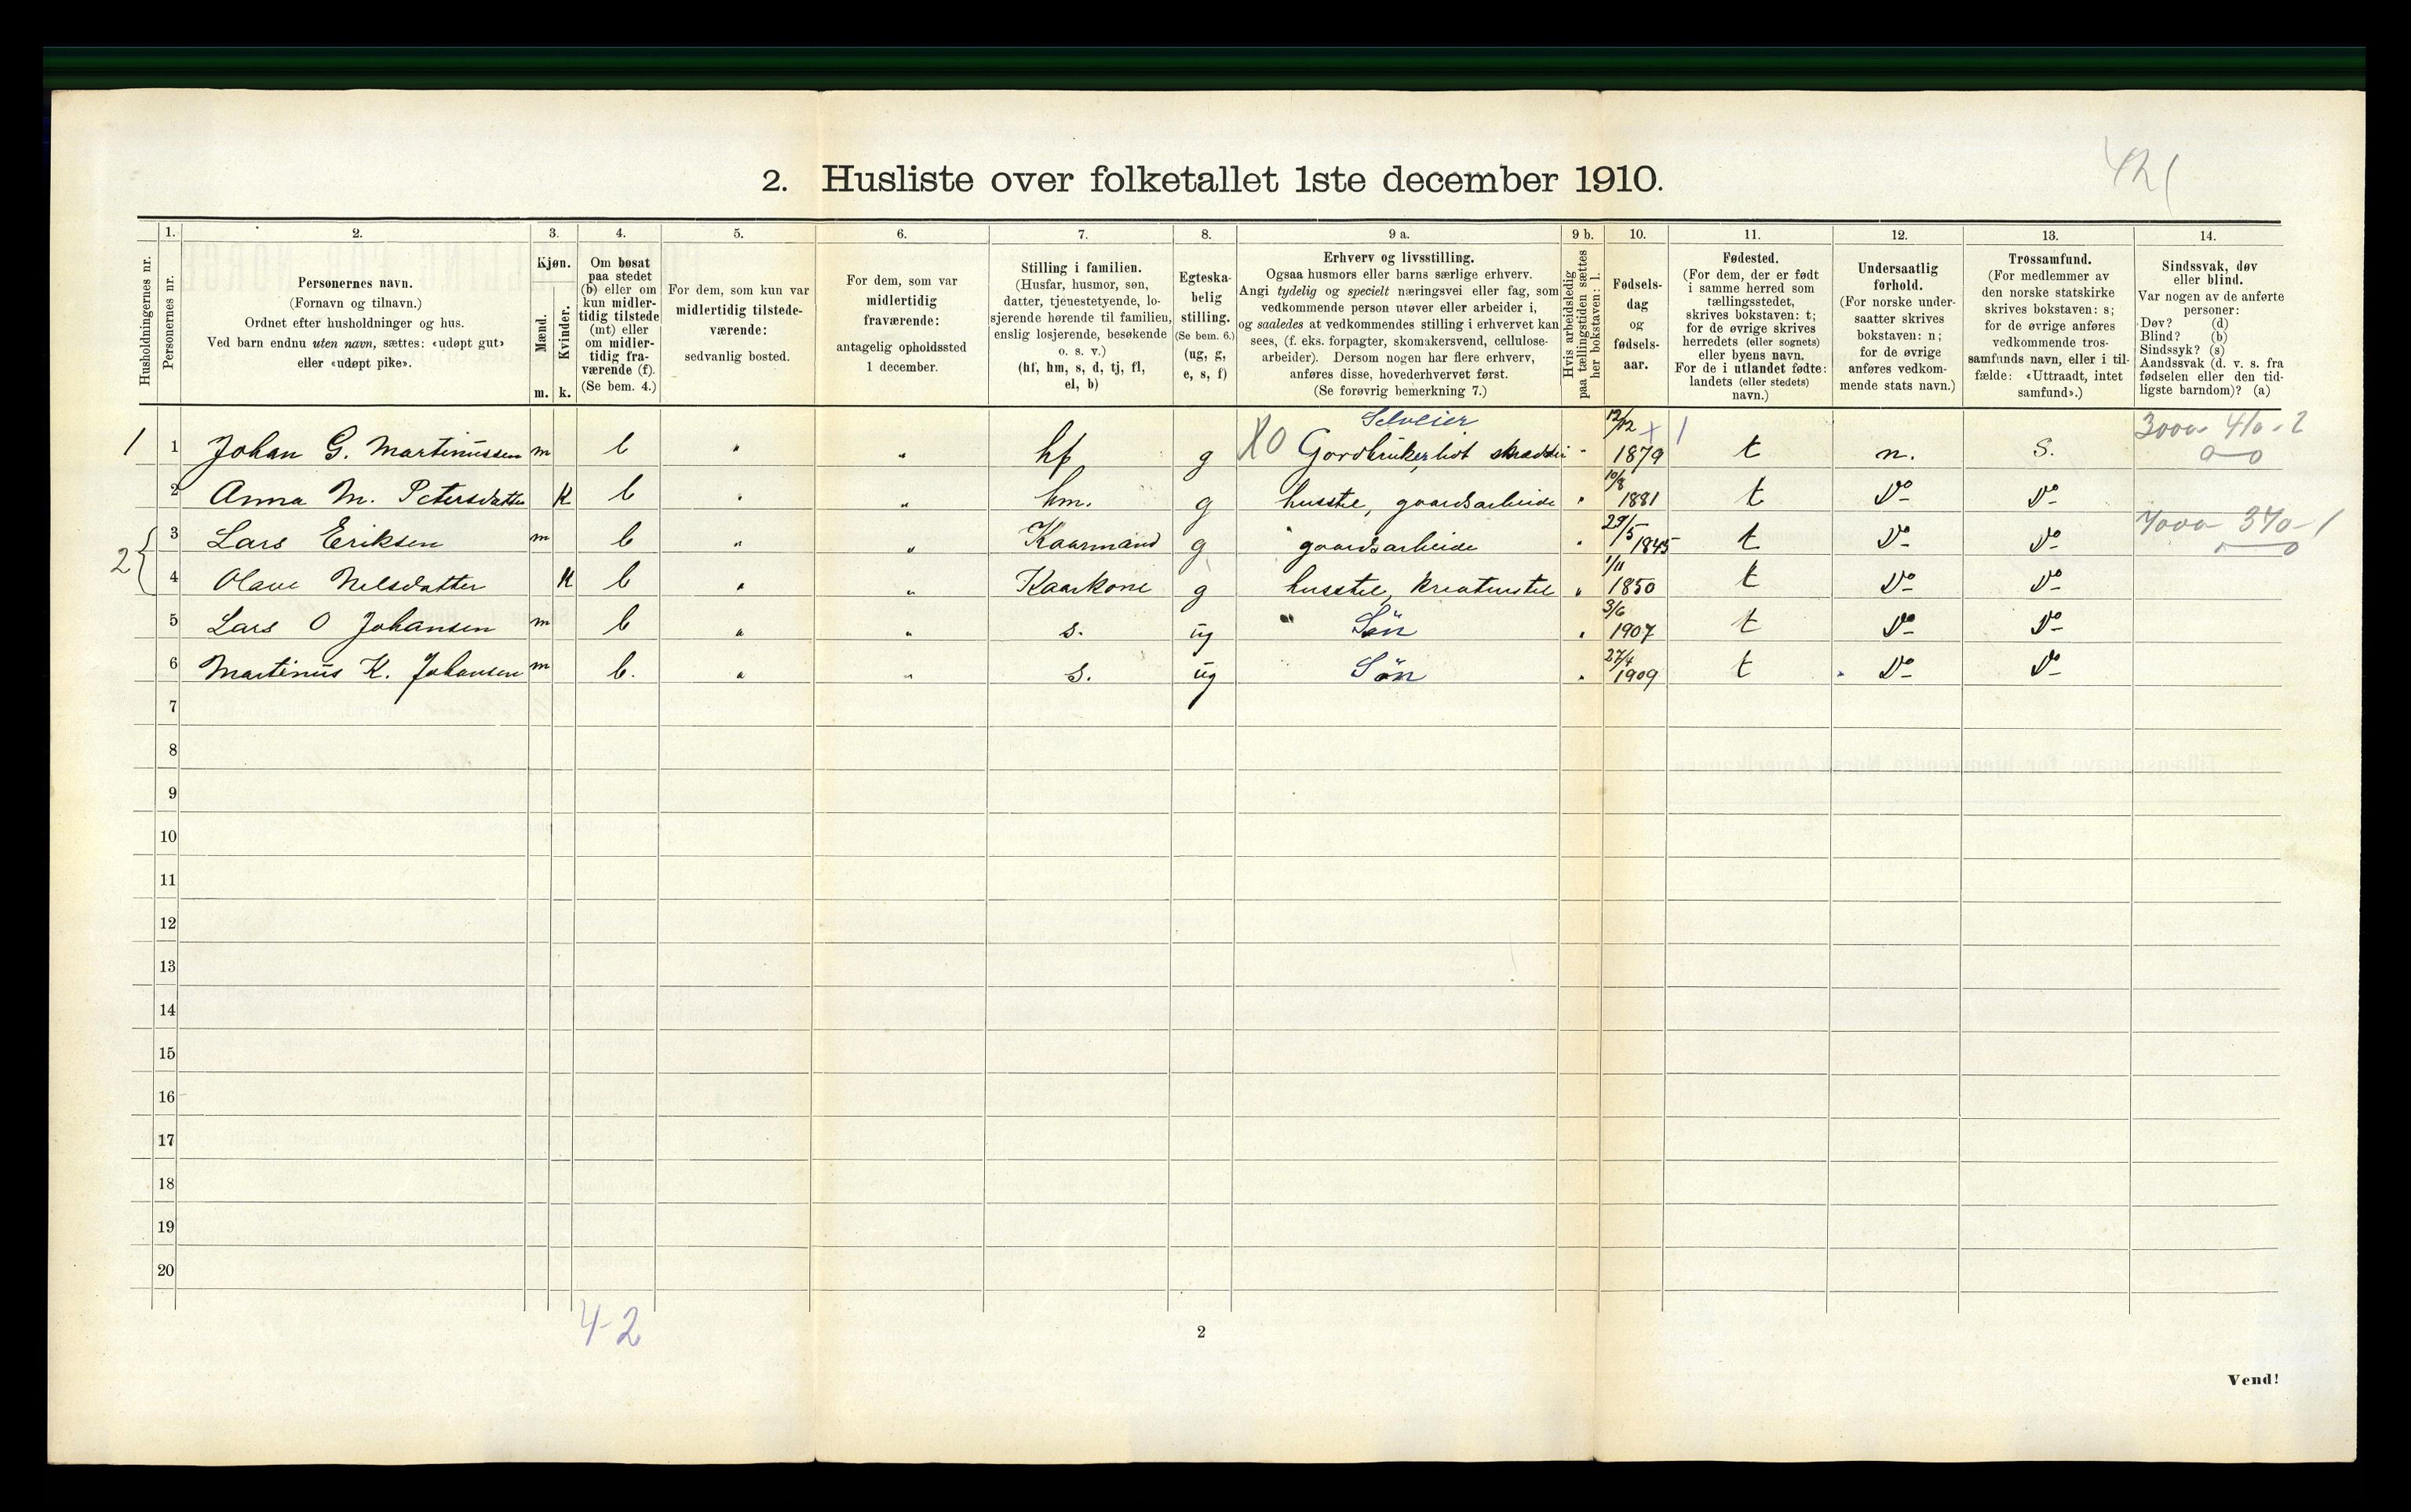 421
2. Husliste over folketallet 1ste december 1910.
Husholdningernes nr.
1.
Personernes nr.
2.
Personernes navn.
(Fornavn og tilnavn.)
Ordnet efter husholdninger og hus.
Ved barn endnu uten navn, sættes: «udøpt gut»
eller «udøpt pike».
3.
Kjøn.
Mænd.
m.
Kvinder.
k.
4.
Om bosat
paa stedet
(b) eller om
kun midler-
tidig tilstede
(mt) eller
om midler-
tidig fra-
værende (f).
(Se bem. 4.)
5.
For dem, som kun var
midlertidig tilstede-
værende:
sedvanlig bosted.
6.
For dem, som var
midlertidig
fraværende:
antagelig opholdssted
1 december.
7.
Stilling i familien.
(Husfar, husmor, søn,
datter, tjenestetyende, lo-
sjerende hørende til familien,
enslig losjerende, besøkende
o. s. v.)
(hf, hm, s, d, tj, fl,
el, b)
8.
Egteska-
belig
stilling.
(Se bem. 6.)
(ug, g,
e, s, f)
9 a.
Erhverv og livsstilling.
Ogsaa husmors eller barns særlige erhverv.
Angi tydelig og specielt næringsvei eller fag, som
vedkommende person utøver eller arbeider i,
og saaledes at vedkommendes stilling i erhvervet kan
sees, (f. eks. forpagter, skomakersvend, cellulose-
arbeider). Dersom nogen har flere erhverv,
anføres disse, hovederhvervet først.
(Se forøvrig bemerkning 7.)
9 b.
Hvis arbeidsledig
paa tællingstiden sættes
her bokstaven: l.
10.
Fødsels-
dag
og
fødsels-
aar.
11.
Fødested.
(For dem, der er født
i samme herred som
tællingsstedet,
skrives bokstaven: t;
for de øvrige skrives
herredets (eller sognets)
eller byens navn.
For de i utlandet fødte:
landets (eller stedets)
navn.)
12.
Undersaatlig
forhold.
(For norske under-
saatter skrives
bokstaven: n;
for de øvrige
anføres vedkom-
mende stats navn.)
13.
Trossamfund.
(For medlemmer av
den norske statskirke
skrives bokstaven: s;
for de øvrige anføres
vedkommende tros-
samfunds navn, eller i til-
fælde: «Uttraadt, intet
samfund».)
14.
Sindssvak, døv
eller blind.
Var nogen av de anførte
personer:
Døv? (d)
Blind? (b)
Sindssyk? (s)
Aandssvak (d. v. s. fra
fødselen eller den tid-
ligste barndom)? (a)
Selveier 12/12 3000 - 410 - 2
1 1 Johan G. Martinussen m b " " hf g X0 Gardbruker, lidt skrædder " 1879 t n. s. 0-0
2 Anna M. Petersdatter K b " " hm. g husstel, gaardsarbeide " 10/8 1881 t Do Do
2 3 Lars Eriksen m b " " Kaarmand g gaardsarbeide " 29/5 1845 t Do Do 7000 - 370 - 1
4 Olave Nelsdatter K b " " Kaarkone g husstel, kreaturstel " 1/11 1850 t Do Do
5 Lars O Johansen m b " " s. ug " Søn " 3/6 1907 t Do Do
6 Martinus K. Johansen m b. " " s. ug Søn " 27/4 1909 t Do Do
7
8
9
10
11
12
13
14
15
16
17
18
19
20
4-2
2
Vend!